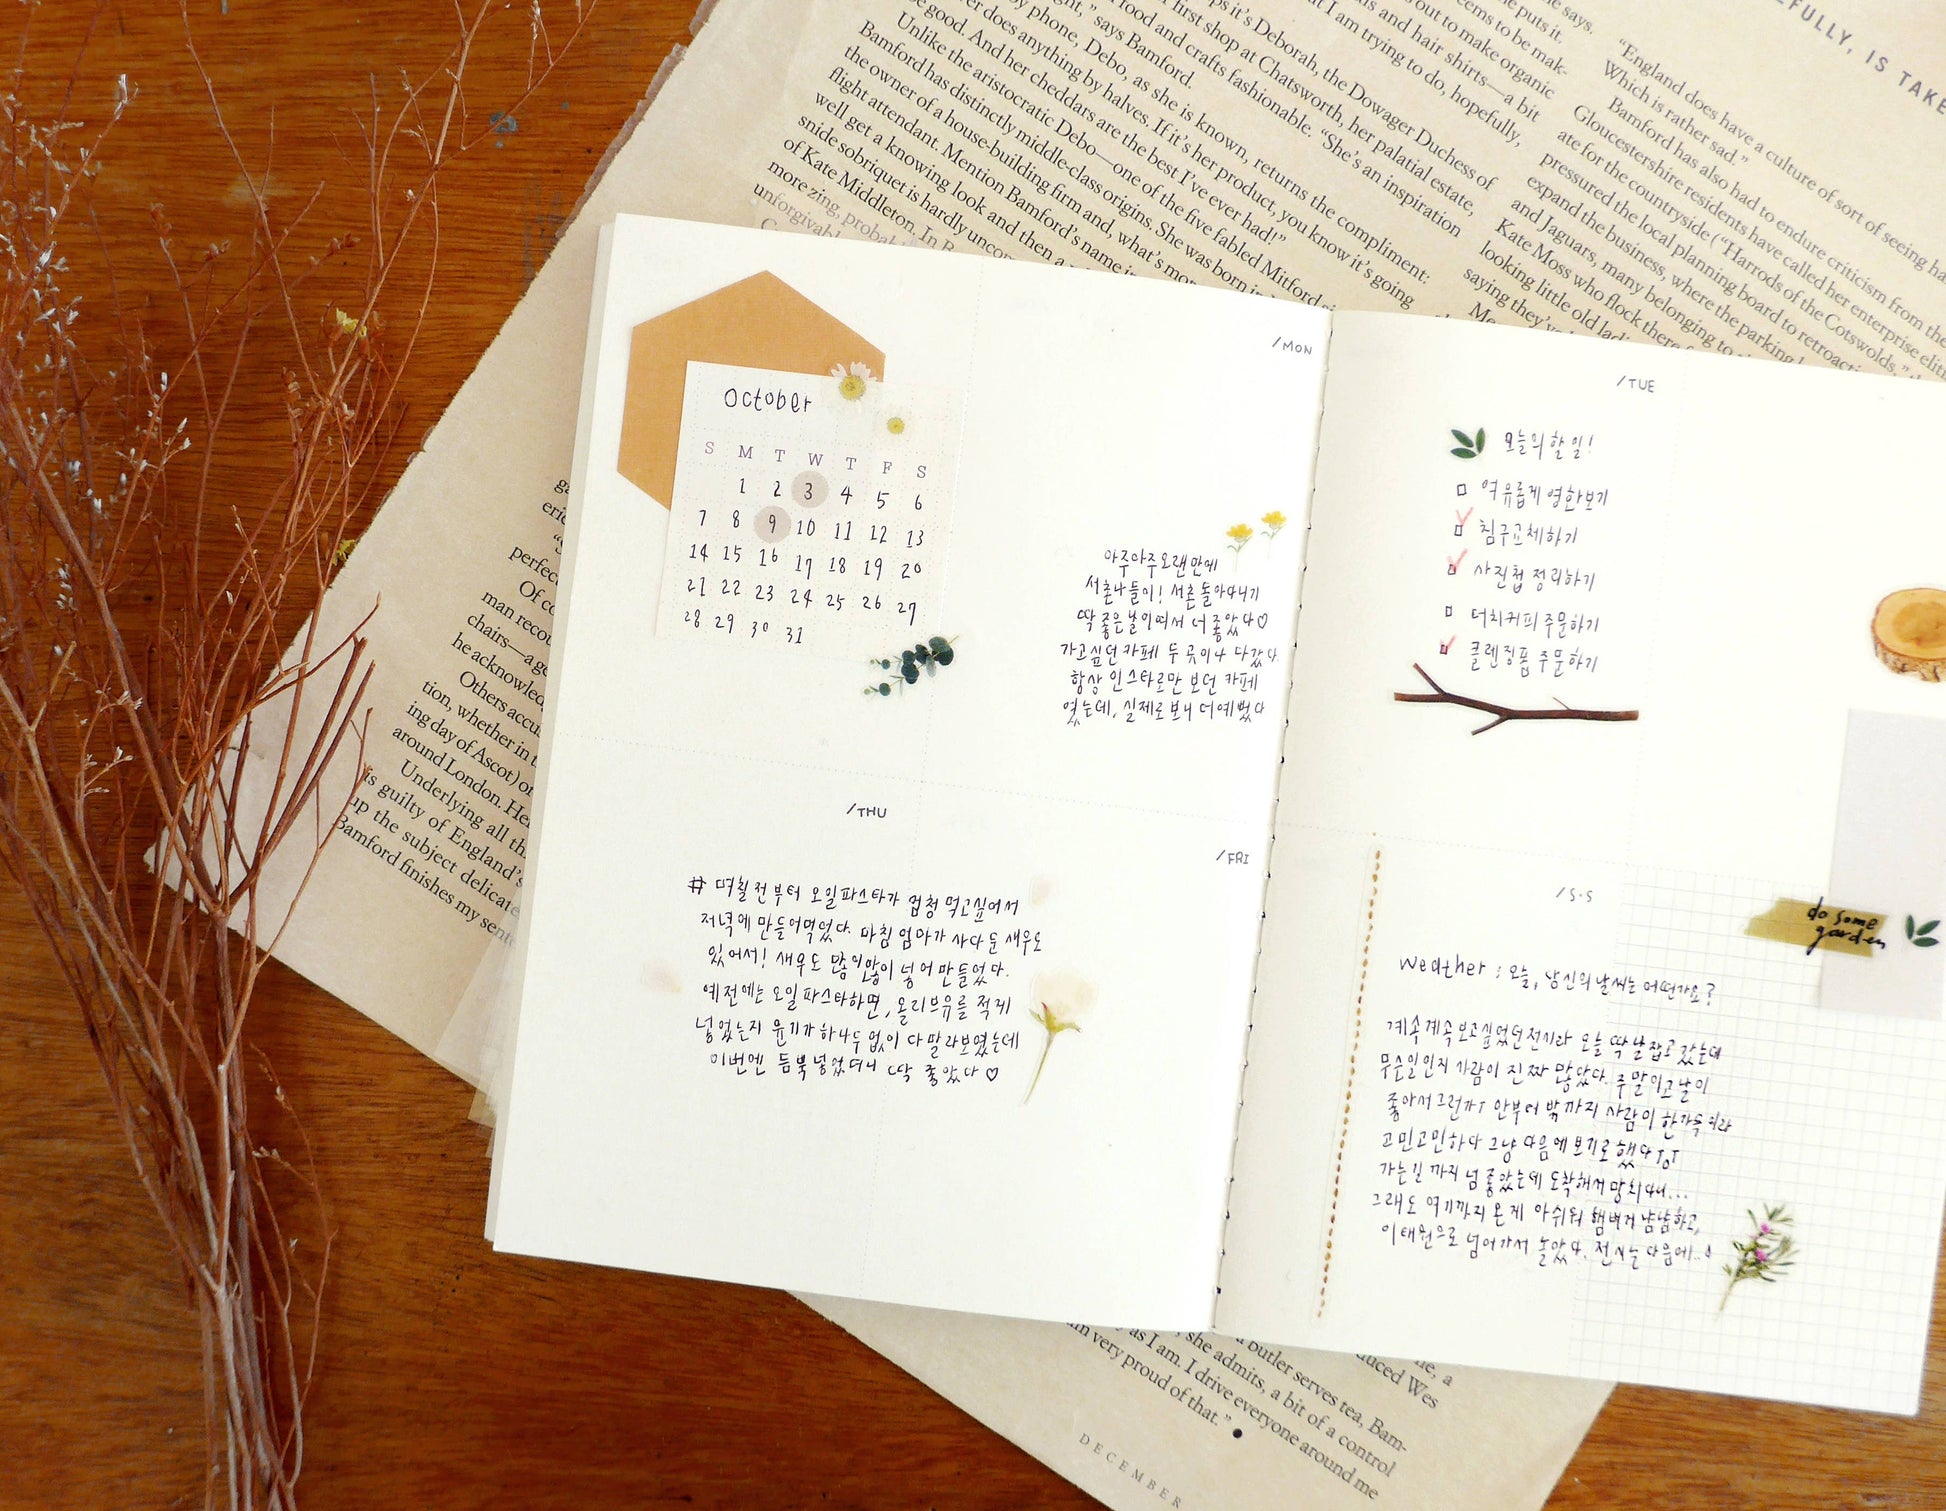 EFULLY, IS TAKE
ght,” says Bamford.
food and crafts fashionable. “She’s an inspiration
first shop at Chatsworth, her palatial estate,
it’s Deborah, the Dowager Duchess of
I am trying to do, hopefully,
and hair shirts—a bit
out to make organic
seems to be mak-
he puts it.
she says.
be good. And her cheddars are the best I’ve ever had!”
er does anything by halves. If it’s her product, you know it’s going
by phone, Debo, as she is known, returns the compliment:
Unlike the aristocratic Debo—one of the five fabled Mitford
Bamford has distinctly middle-class origins. She was born in
the owner of a house-building firm and, what’s more
flight attendant. Mention Bamford’s name
well get a knowing look and then a
snide sobriquet is hardly
of Kate Middleton. In
more zing,
unforgivabl
“England does have a culture of sort of seeing
Which is rather sad.”
Bamford has also had to endure criticism from the
Gloucestershire residents have called her enterprise
ate for the countryside (“Harrods of the Cotswolds,”
pressured the local planning board to
expand the business, where the parking
and Jaguars, many belonging to
Kate Moss who flock there
looking little old
saying they’
October
S M T W T F S
1 2 3 4 5 6
7 8 9 10 11 12 13
14 15 16 17 18 19 20
21 22 23 24 25 26 27
28 29 30 31
/MON
아주아주 오랜만에
서촌나들이! 서촌 돌아다니기
딱 좋은 날이여서 더 좋았다♡
가고싶던 카페 두 곳이나 다갔다.
항상 인스타로만 보던 카페
였는데, 실제로 보니 더 예뻤다
/TUE
오늘의 할 일!
□ 여유롭게 영화보기
☑ 침구교체하기
☑ 사진첩 정리하기
□ 더치커피 주문하기
☑ 클렌징폼 주문하기
/THU
# 며칠 전부터 오일파스타가 엄청 먹고싶어서
저녁에 만들어먹었다. 마침 엄마가 사다둔 새우도
있어서! 새우도 많이많이 넣어 만들었다.
예전에는 오일파스타하면, 올리브유를 적게
넣었는지 윤기가 하나두 없이 다 말라보였는데
이번엔 듬뿍 넣었더니 딱 좋았다 ♡
/FRI
/S·S
do some
garden
Weather : 오늘, 당신의 날씨는 어떤가요?
계속계속 보고싶었던 전시라 오늘 딱 날잡고 갔는데
무슨일인지 사람이 진짜 많았다. 주말이고 날이
좋아서 그런가? 안부터 밖까지 사람이 한가득이라
고민고민하다 그냥 다음에 보기로 했다 ToT
가는길까지 넘 좋았는데 도착해서 망치다니...
그래도 여기까지 온게 아쉬워 햄버거 냠냠하고,
이태원으로 넘어가서 놀았다. 전시는 다음에..
perfec
Of co
man recou
chairs—a ge
he acknowled
Others accu
tion, whether in t
ing day of Ascot) or
around London. Her
Underlying all th
is guilty of England’s
up the subject delicate
Bamford finishes my sent
she admits, a bit of a control
a butler serves tea, Bam-
as I am. I drive everyone around me
very proud of that.” ●
DECEMBER